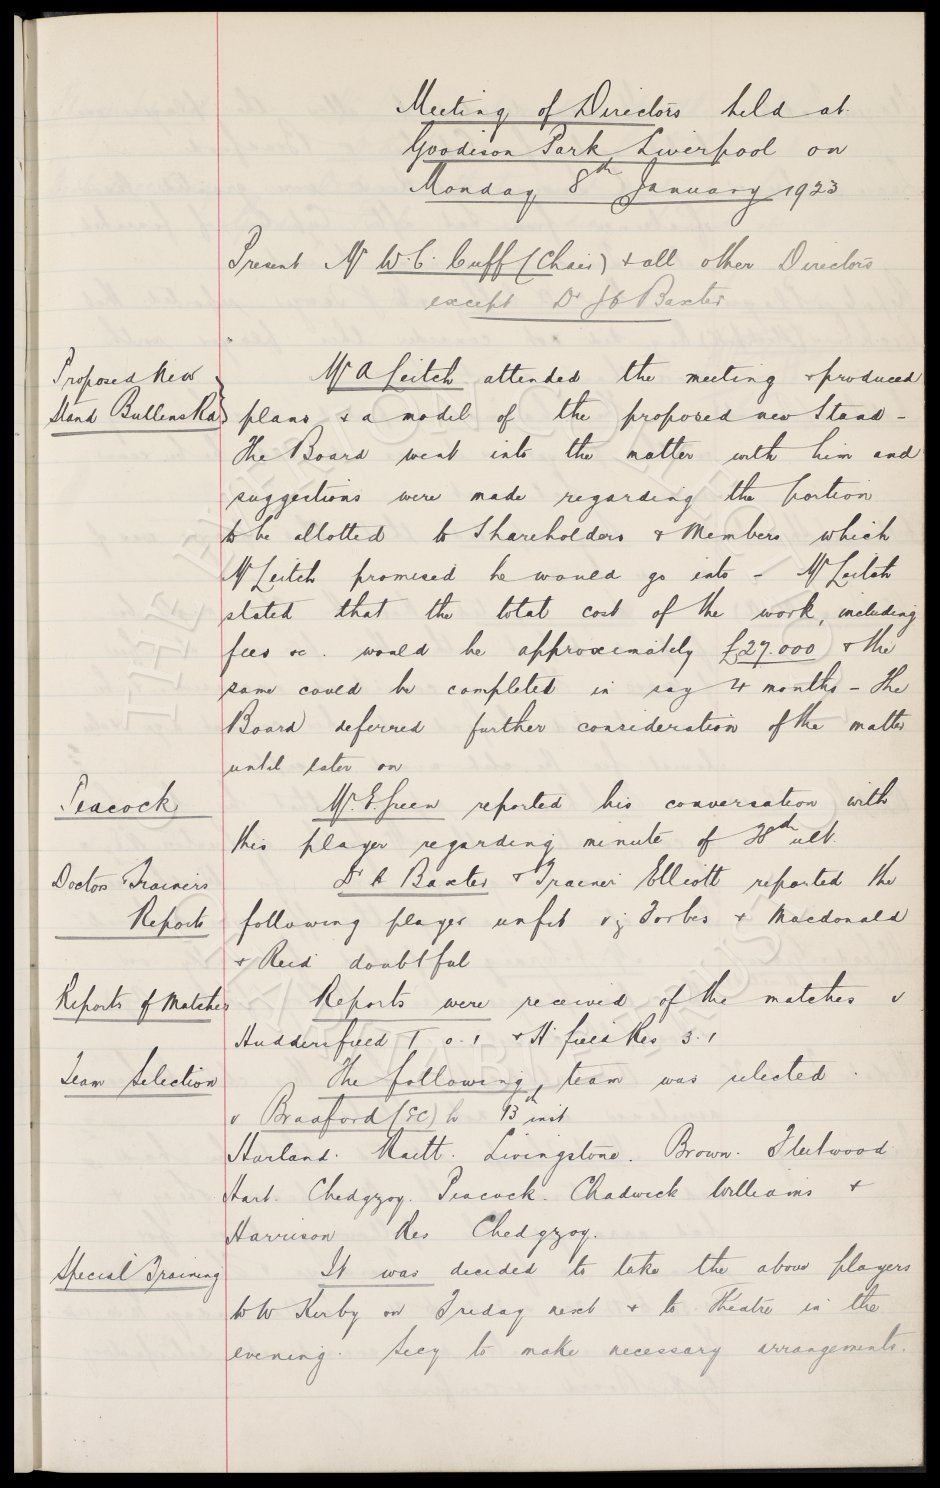 Meeting of Directors held at
Goodison Park Liverpool on
Monday 8th January 1923
Present Mr W.C. Cuff (Chair) & all other Directors
except Dr J C Baxter
Proposed New
Stand Bullens Rd
Mr A Leitch attended the meeting & produced
plans & a model of the proposed new Stand -
The Board went into the matter with him and
suggestions were made regarding the portion
to be allotted to Shareholders & Members which
Mr Leitch promised he would go into - Mr Leitch
stated that the total cost of the work, including
fees &c. would be approximately £27.000 & the
same could be completed in say 4 months - The
Board deferred further consideration of the matter
until later on
Peacock
Mr E. Green reported his conversation with
this player regarding minute of 28th ult.
Doctors & Trainers
Reports
Dr Baxter & Trainer Elliott reported the
following player unfit viz Forbes & Macdonald
& Reid doubtful
Reports of Matches
Reports were received of the matches v
Huddersfield T 0.1 & H'field Res 3.1
Team Selection
The following team was selected.
v Bradford (EC) h 13th inst
Harland. Raitt. Livingstone. Brown. Fleetwood
Hart. Chedgzoy. Peacock. Chadwick Williams &
Harrison Res Chedgzoy.
Special Training
It was decided to take the above players
to W Kirby on Friday next & to Theatre in the
evening. Secy to make necessary arrangements.